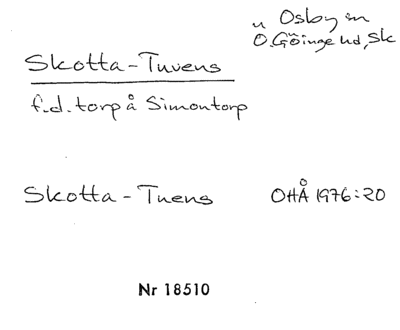 Osby sn
Ö. Göinge hd, Sk
Skotta-Tuvens
f.d. torp å Simontorp
Skotta-Tuens OHÅ 1976:20
Nr 18510